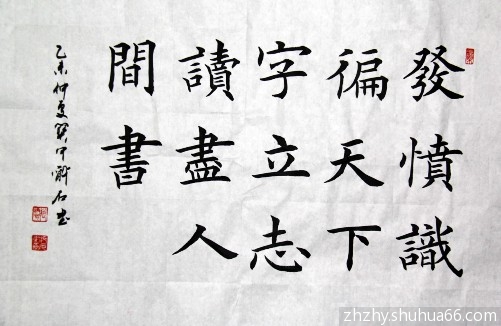 發憤識
徧天下
字立志
讀盡人
間書
乙未仲夏
zhzhy.shuhua66.com